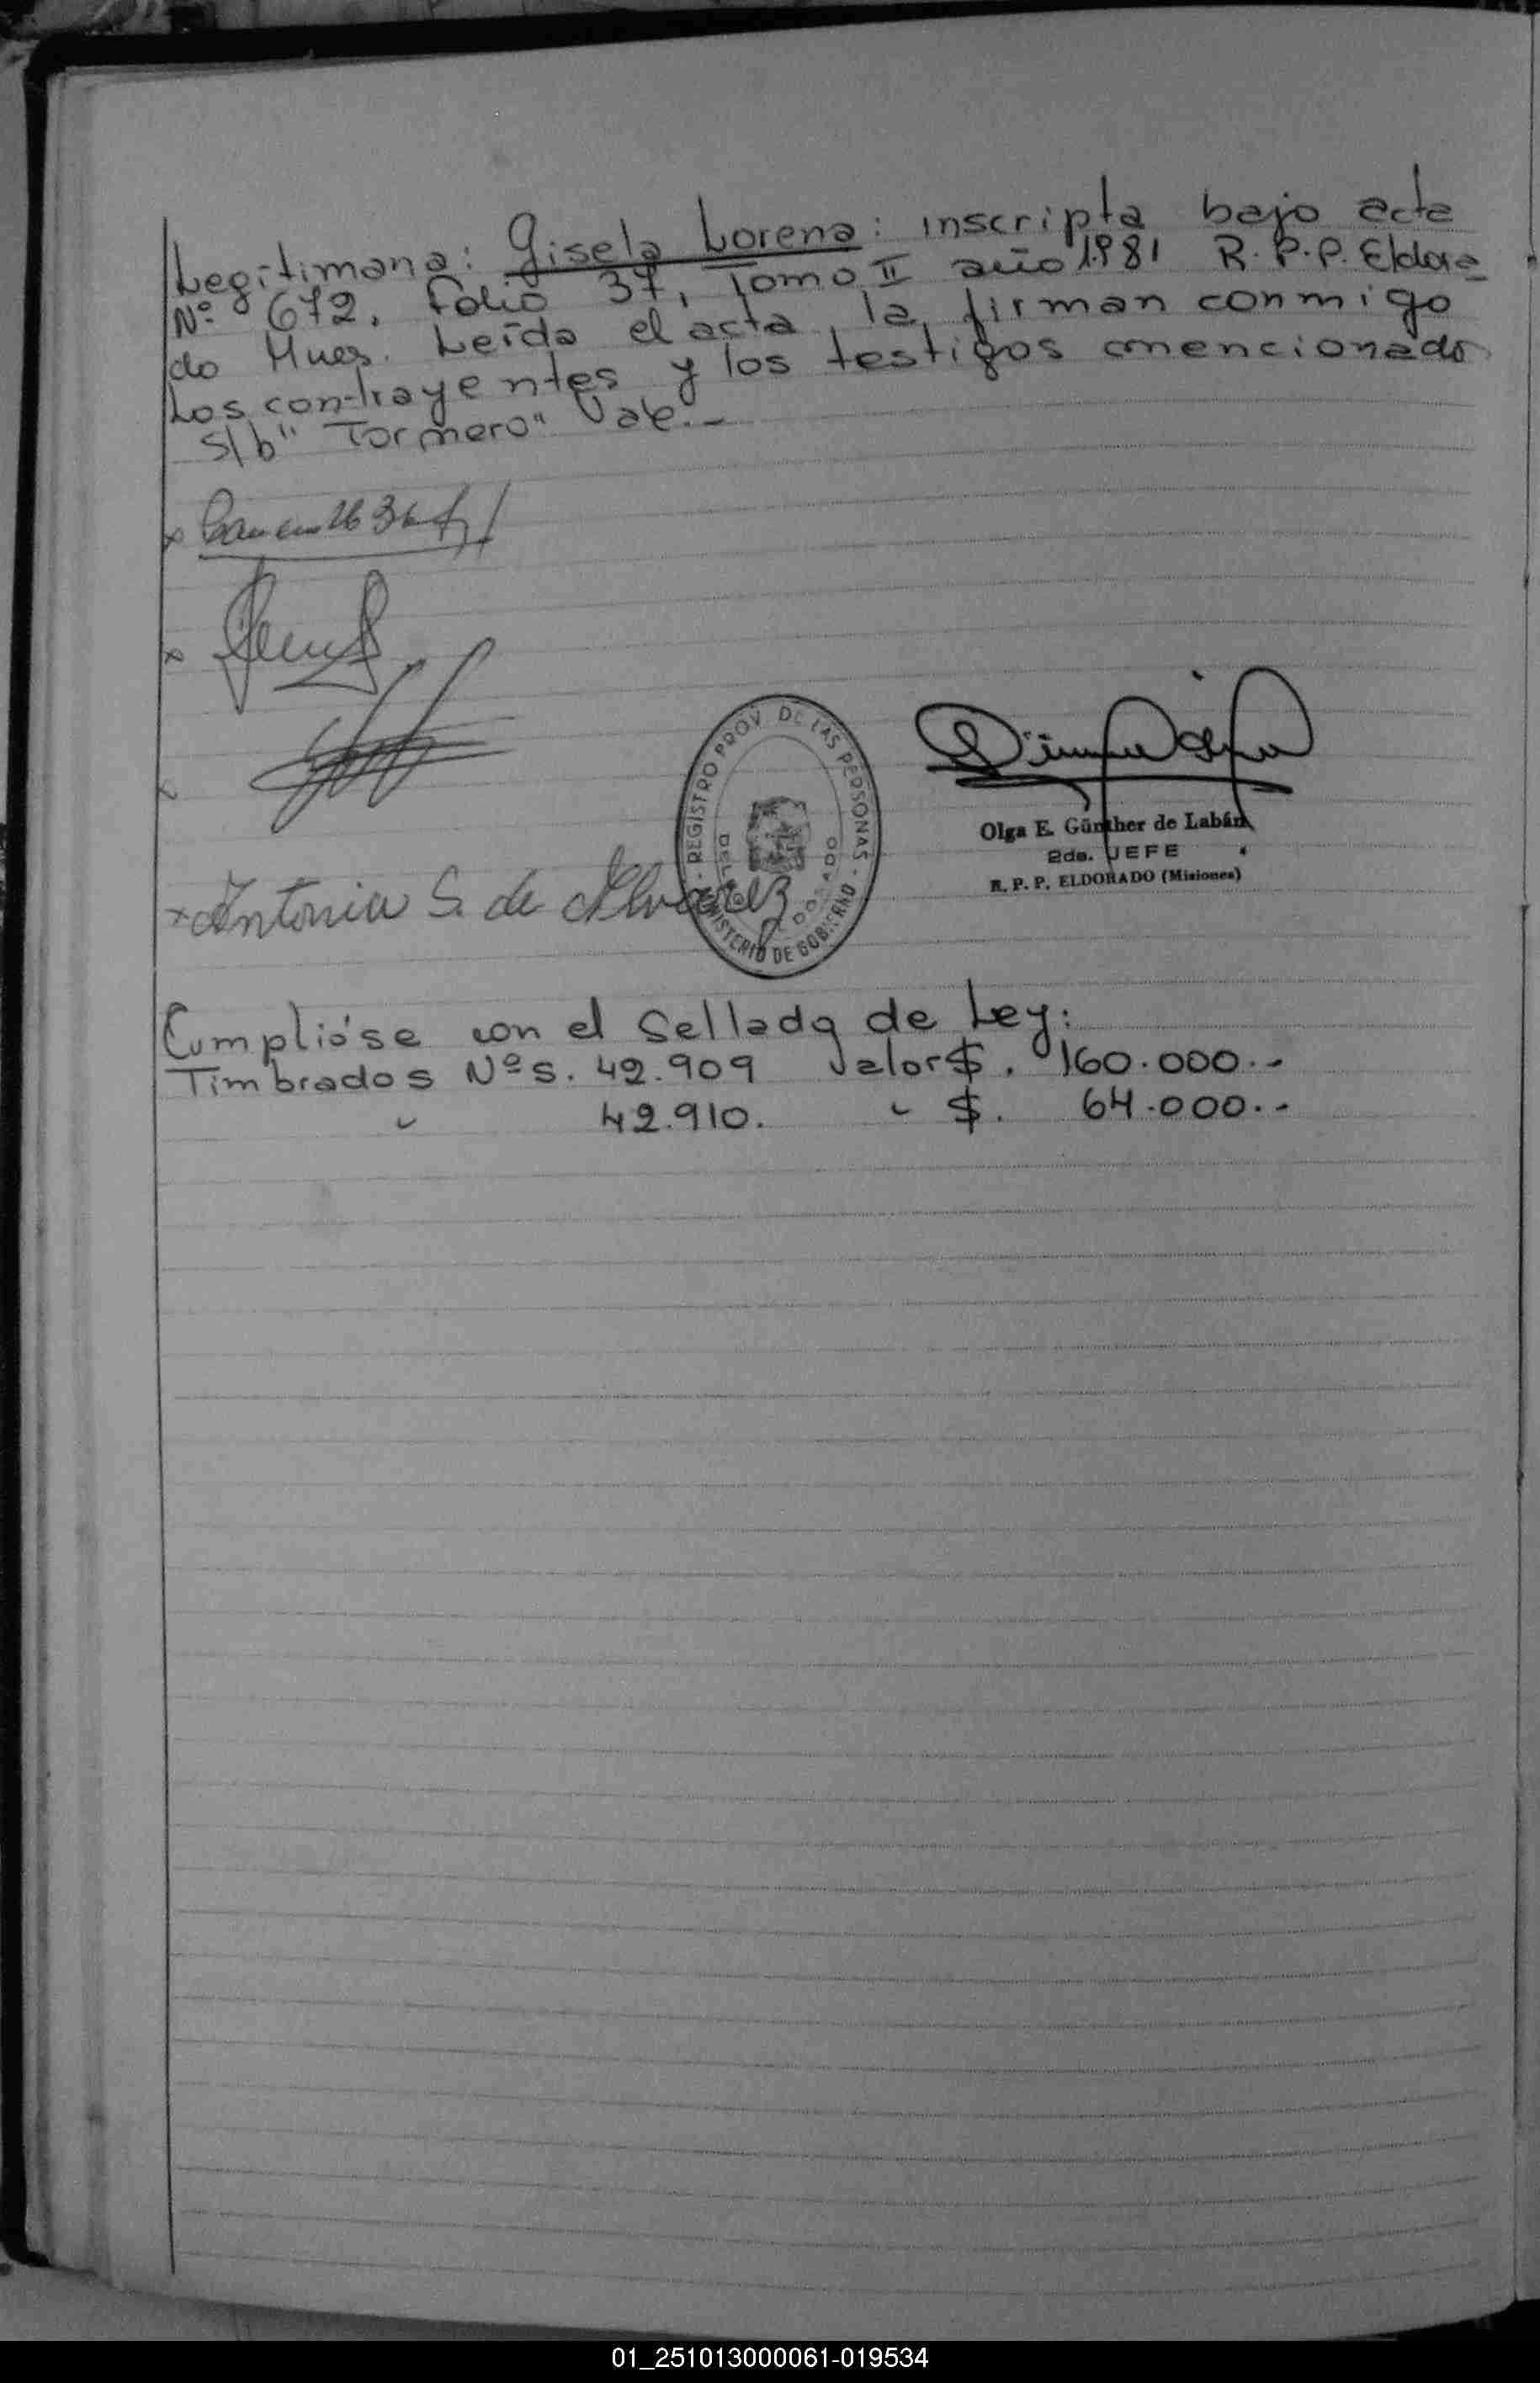 Legitimana: Gisela Lorena: inscripta bajo acta
Nº 672, Folio 37, Tomo II año 1.981 R.P.P. Eldora=
do Mnes. Leída el acta, la firman conmigo
Los contrayentes y los testigos mencionados
S/b" Tormero" Vale.-
REGISTRO PROV. DE LAS PERSONAS - MINISTERIO DE GOBIERNO -
Olga E. Günther de Labán
2da. JEFE
R. P. P. ELDORADO (Misiones)
x Antonia S. de Alvarez
Cumplióse con el Sellado de Ley:
Timbrados Nºs. 42.909 Valor $. 160.000.-
" 42.910. " $. 64.000.-
01_251013000061-019534